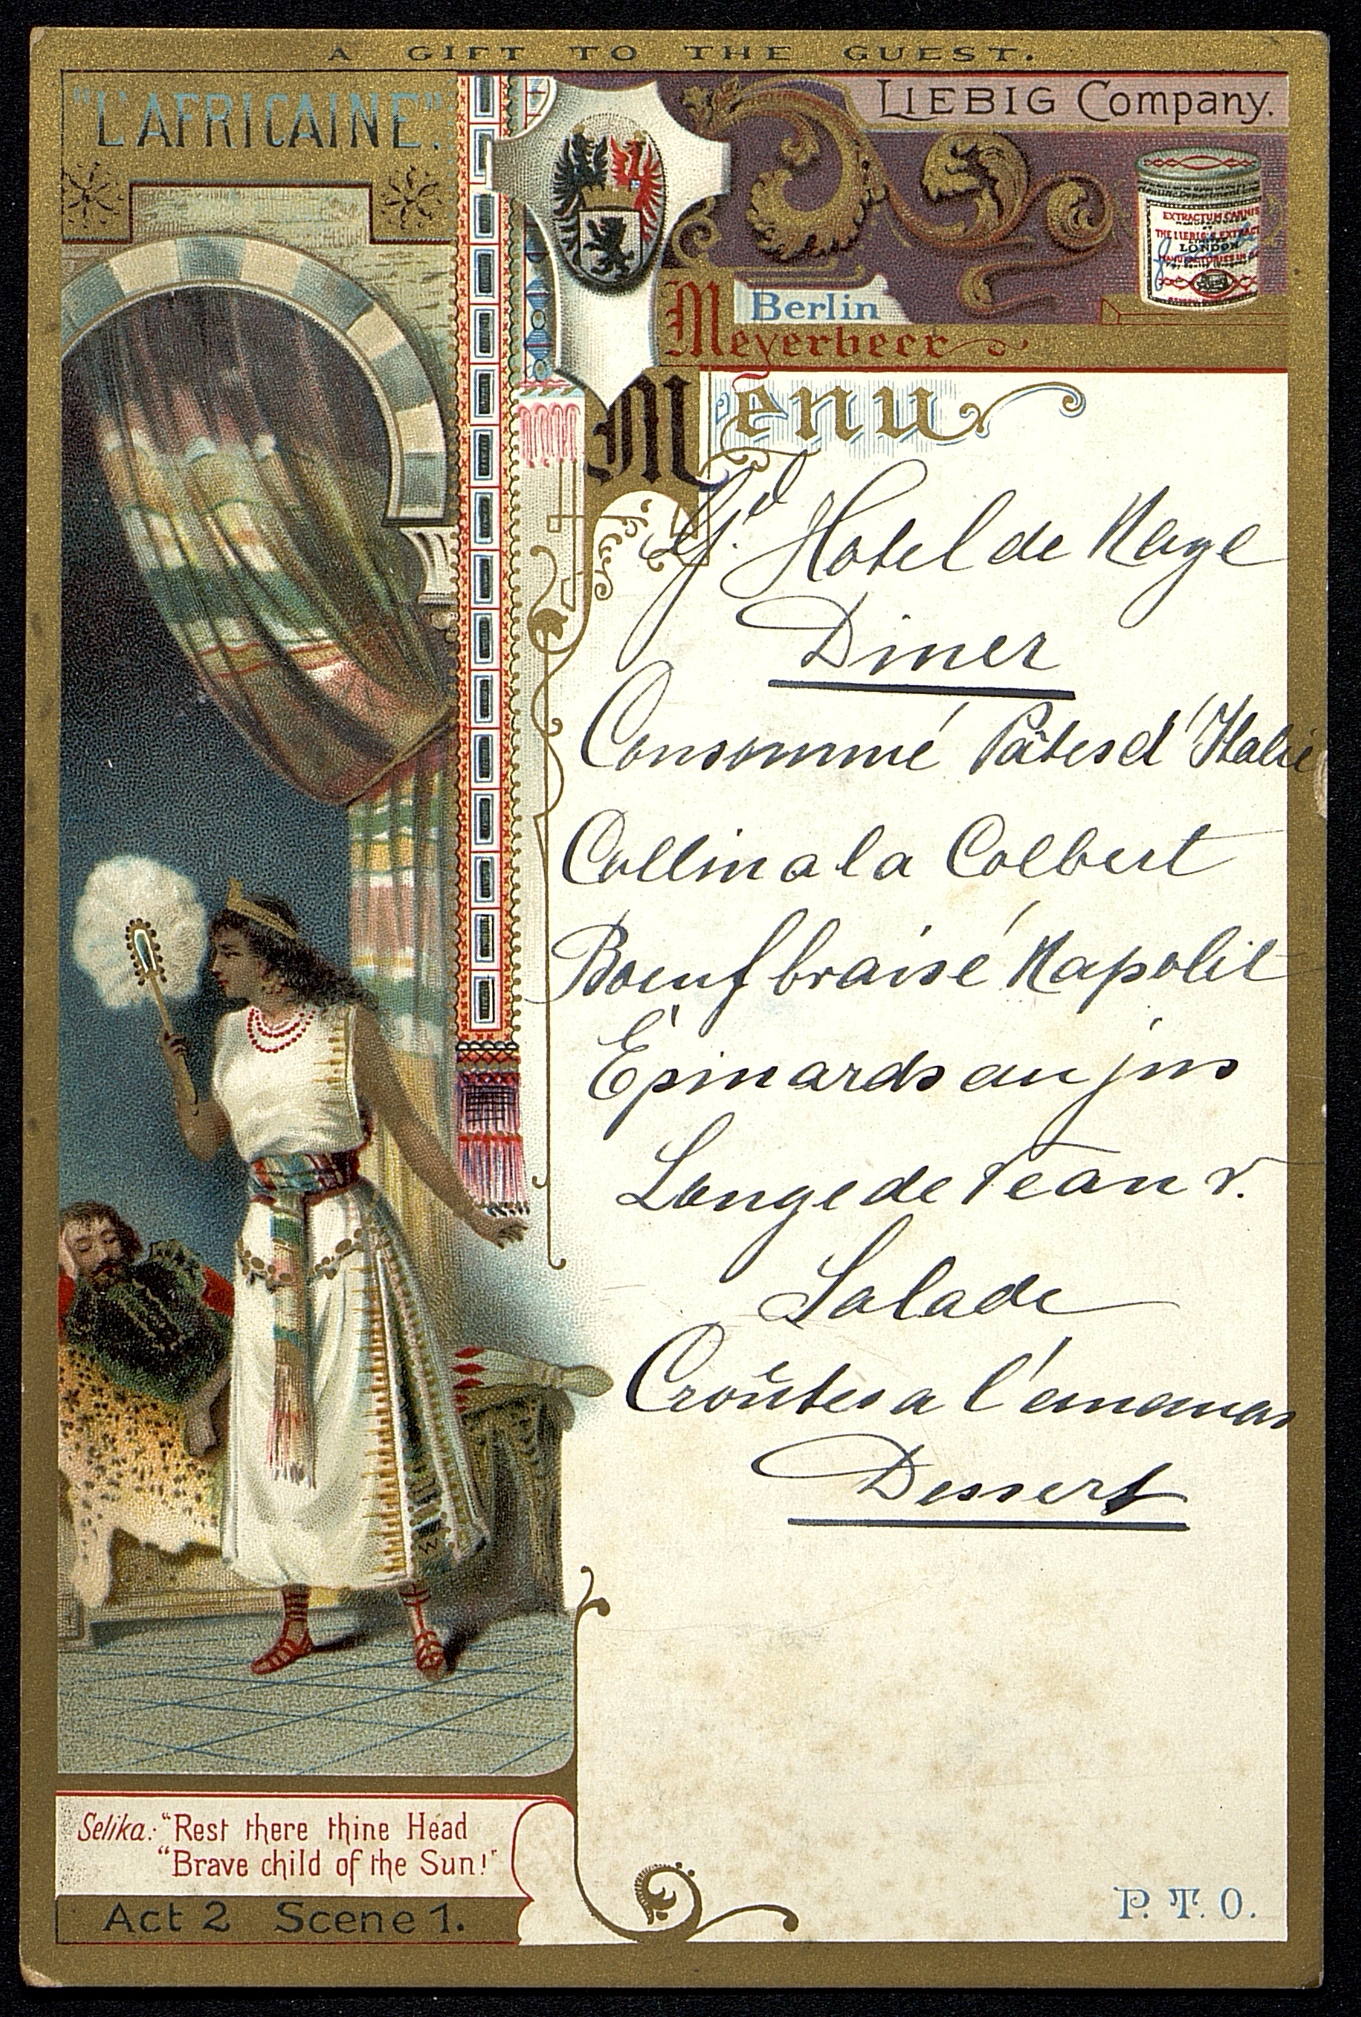 A GIFT TO THE GUEST.
"L'AFRICAINE".
LIEBIG Company.
EXTRACTUM CARNIS
THE LIEBIG'S EXTRACT
LONDON
Berlin
Meyerbeer
Menu
Gd. Hotel de Naye
Diner
Consommé Pâtes d'Italie
Collin a la Colbert
Boeuf braisé Napolit
Épinards au jus
Longe de Veau r.
Salade
Croûtes a l'ananas
Dessert
Selika: "Rest there thine Head
"Brave child of the Sun!"
Act 2 Scene 1.
P. T. O.